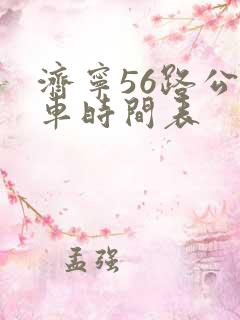 濟寧56路公
車時間表
孟强